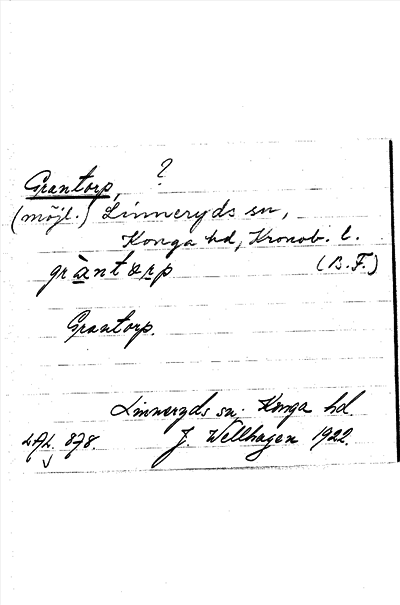 Grantorp, ?
(möjl.) Linneryds sn,
Konga hd, Kronob. l.
gràntɷrp (B.F.)
Grantorp.
Linneryds sn. Konga hd.
878. J. Wellhagen 1922.